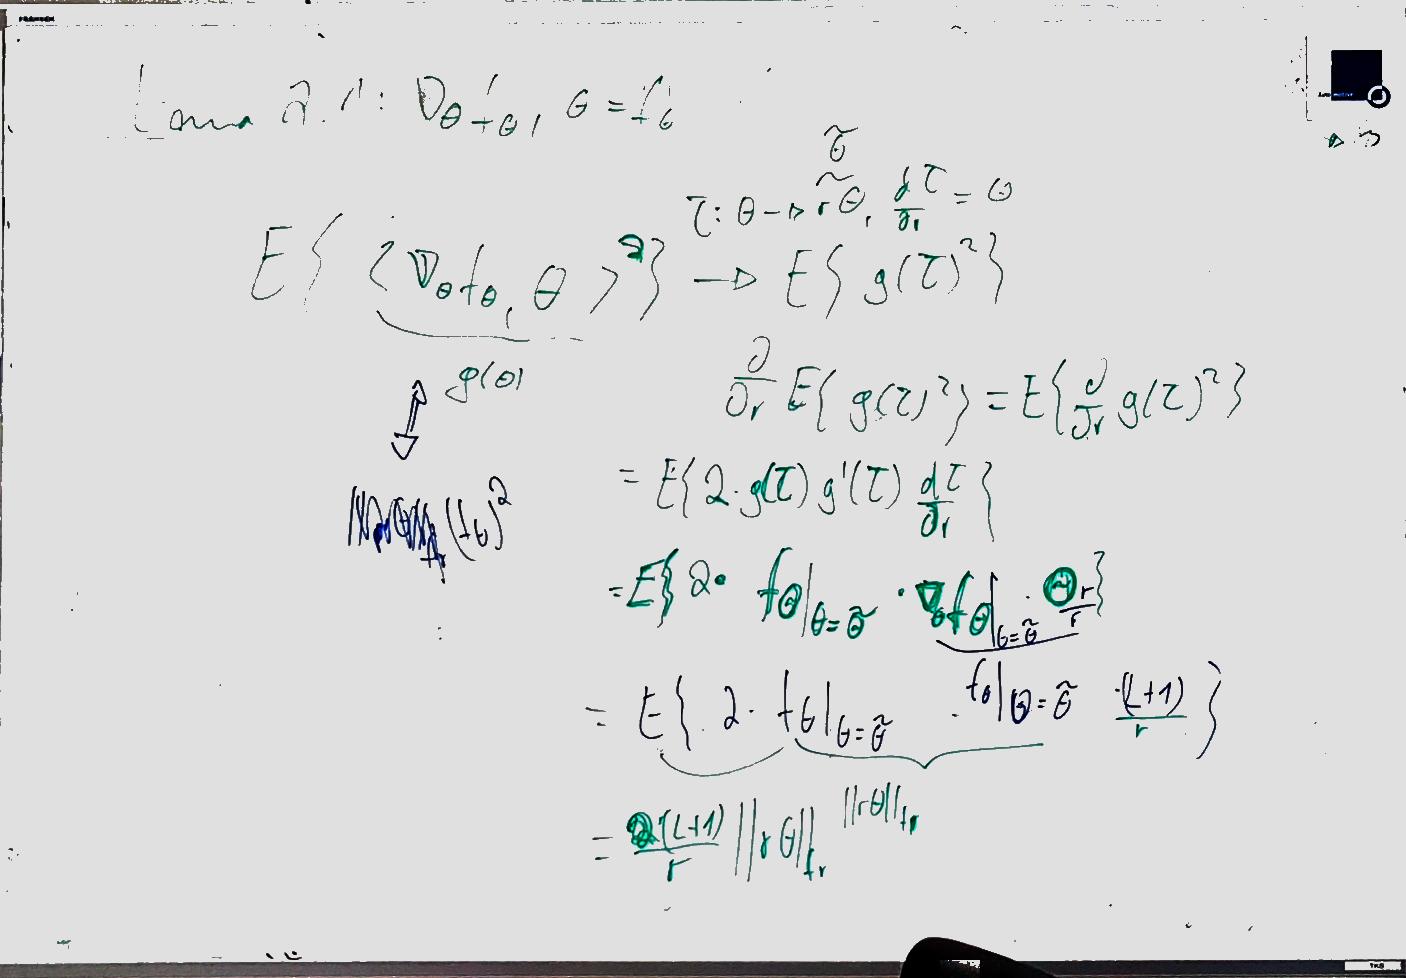 Lemma 2.1: ∇θ fθ, θ = fθ
θ̃
τ: θ → rθ, dτ/dr = θ
E{ <∇θ fθ, θ>² } → E{ g(τ)² }
g(θ)
∂/∂r E{ g(τ)² } = E{ ∂/∂r g(τ)² }
= E{ 2· g(τ) g'(τ) dτ/dr }
(fθ)²
= E{ 2 · fθ|θ=θ̃ · ∇θ fθ|θ=θ̃ · Θ r/r }
= E{ 2 · fθ|θ=θ̃ · fθ|θ=θ̃ · (L+1)/r }
= 2(L+1)/r ||rθ||fr ||rθ||fr